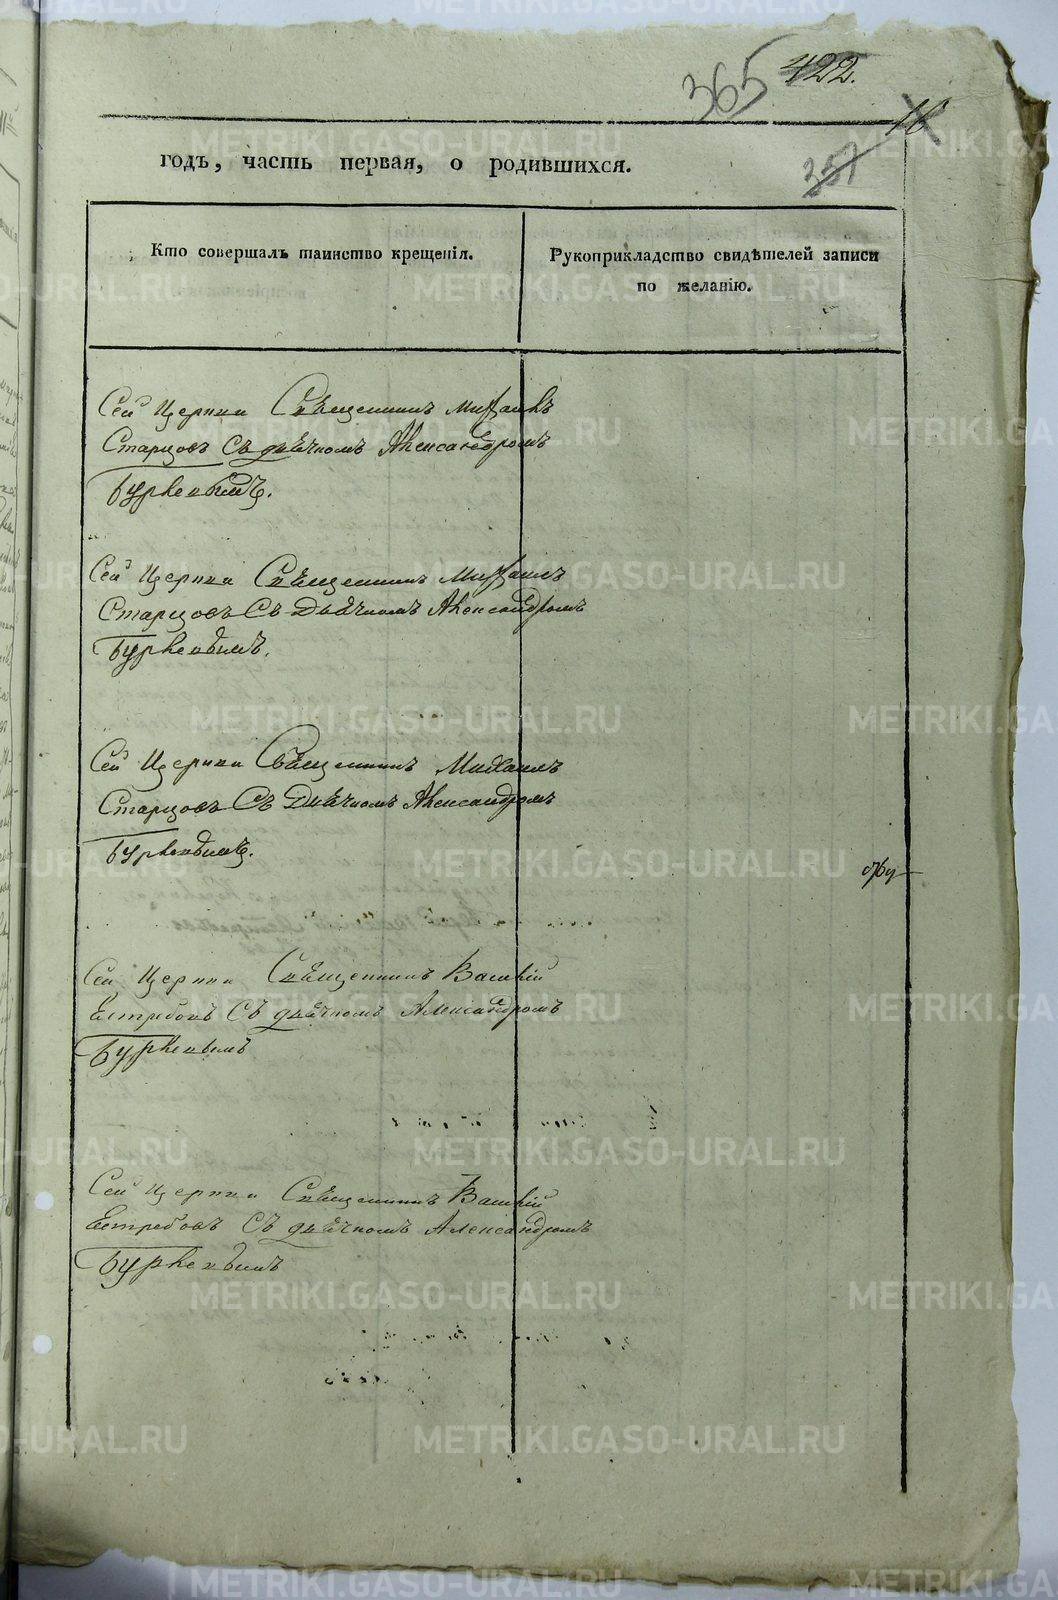 365 422.
16
351
годъ, часть первая, о родившихся.
Кто совершалъ таинство крещенія.
Рукоприкладство свидѣтелей записи
по желанію.
Сей Церкви Священникъ Михаилъ
Старцовъ Съ дьячкомъ Александромъ
Сей Церкви Священникъ Михаилъ
Старцовъ Съ Дьячкомъ Александромъ
Сей Церкви Священникъ Михаилъ
Старцовъ Съ Дьячкомъ Александромъ
Сей Церкви Священникъ Василій
Ястребовъ Съ дьячкомъ Александромъ
Сей Церкви Священникъ Василій
Ястребовъ Съ дьячкомъ Александромъ
METRIKI.GASO-URAL.RU